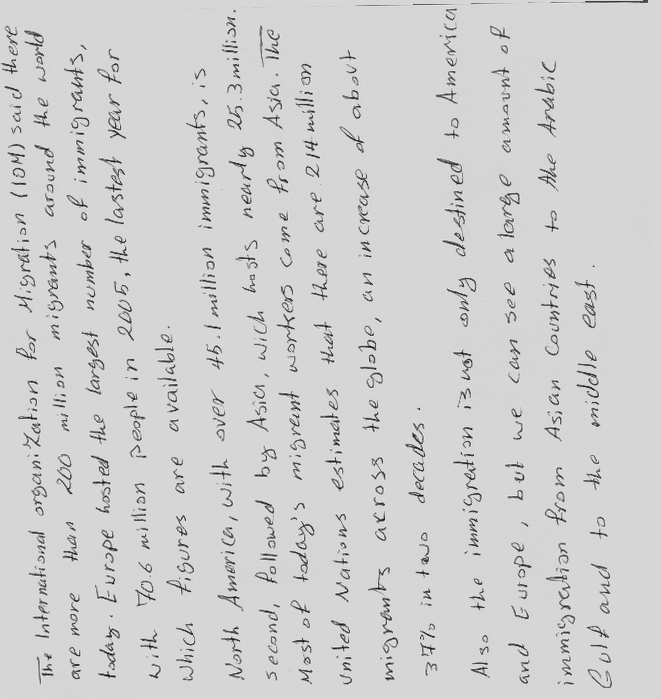 The International organiZation for Migration (IOM) said there
are more than 200 million migrants around the world
today. Europe hosted the largest number of immigrants,
with 70.6 million people in 2005, the lastest year for
which figures are available.
North America, with over 45.1 million immigrants, is
second, followed by Asia, wich hosts nearly 25.3 million.
Most of today's migraint workers come from Asia. The
United Nations estimates that there are 214 million
migrants across the globe, an increase of about
37% in two decades.
Also the immigration is not only destined to America
and Europe, but we can see a large amount of
immigration from Asian Countries to the Arabic
Gulf and to the middle east.